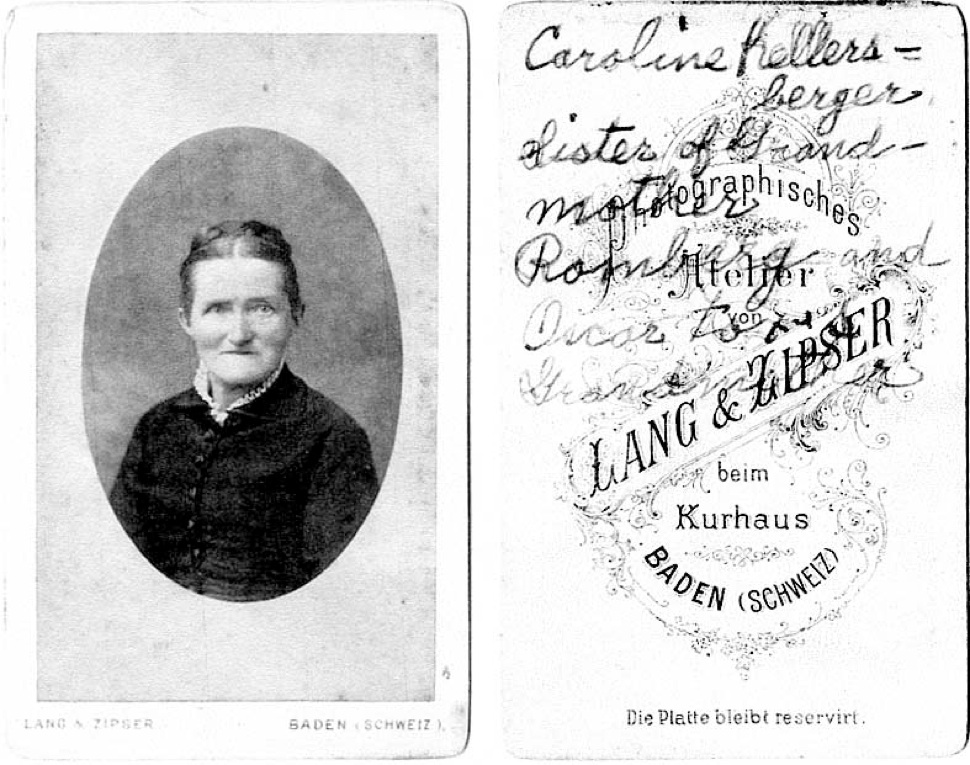 LANG & ZIPSER
BADEN (SCHWEIZ).
Caroline Kellers=
berger
Sister of Grand-
mother
Photographisches
Romberg and
Atelier
Oscar
von
LANG & ZIPSER
beim
Kurhaus
BADEN (SCHWEIZ)
Die Platte bleibt reservirt.